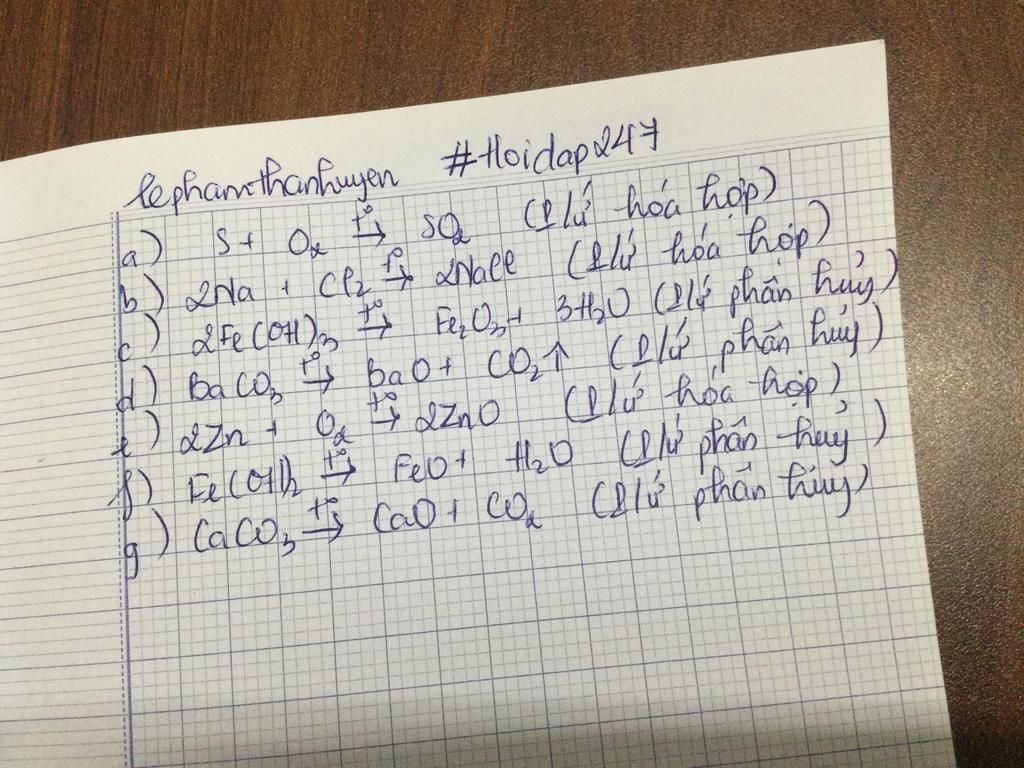 lephamthanhuyen #Hoidap247
a) S + O₂ t° → SO₂ (P/ứ hóa hợp)
b) 2Na + Cl₂ t° → 2NaCl (P/ứ hóa hợp)
c) 2Fe(OH)₃ t° → Fe₂O₃ + 3H₂O (P/ứ phân hủy)
d) BaCO₃ t° → BaO + CO₂↑ (P/ứ phân hủy)
e) 2Zn + O₂ t° → 2ZnO (P/ứ hóa hợp)
f) Fe(OH)₂ t° → FeO + H₂O (P/ứ phân hủy)
g) CaCO₃ t° → CaO + CO₂ (P/ứ phân hủy)